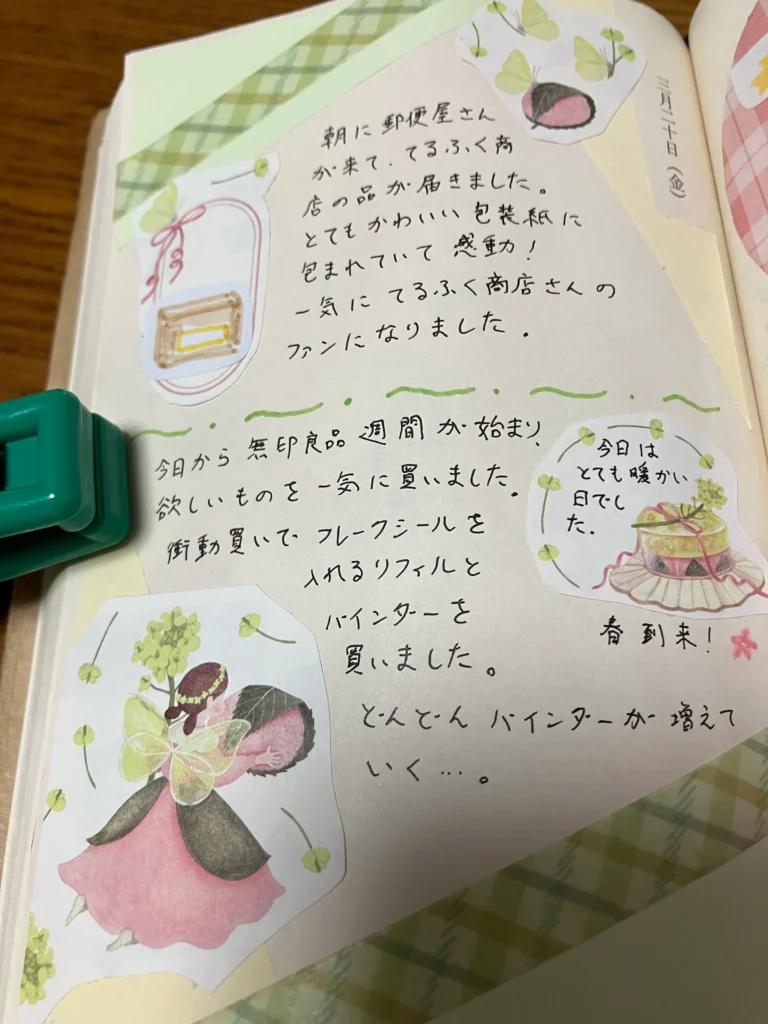 三月二十日（金）
朝に郵便屋さん
が来て、てるふく商
店の品が届きました。
とてもかわいい包装紙に
包まれていて感動！
一気にてるふく商店さんの
ファンになりました。
今日から無印良品週間が始まり、
欲しいものを一気に買いました。
衝動買いでフレークシールを
入れるリフィルと
バインダーを
買いました。
どんどんバインダーが増えて
いく…。
今日は
とても暖かい
日でし
た。
春到来！